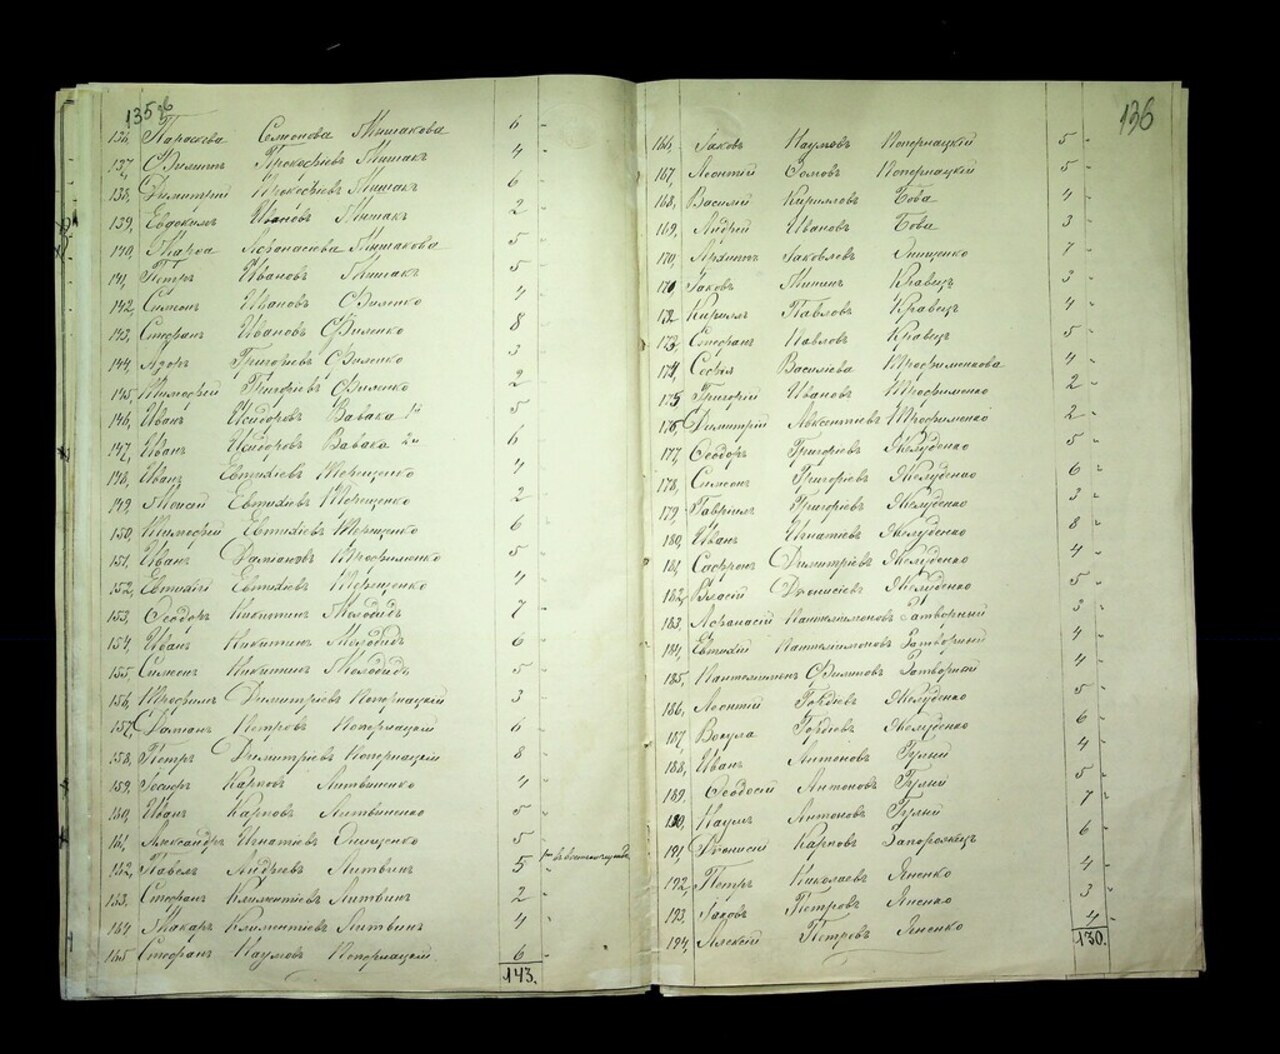 135 об
136, Параскева Семонова Мишакова 6 -
137, Филиппъ Прокофіевъ Мишакъ 4 -
138, Димитрій Прокофіевъ Мишакъ 6 -
139, Евдокимъ Ивановъ Мишакъ 2 -
140, Марѳа Афанасіева Мишакова 5 -
141, Петръ Ивановъ Мишакъ 5 -
142, Симеонъ Ивановъ Филенко 4 -
143, Стефанъ Ивановъ Филенко 8 -
144, Григоріевъ Филенко 3 -
145, Тимофей Григоріевъ Филенко 2 -
146, Иванъ Исидоровъ Вавака 1й 5 -
147, Иванъ Исидоровъ Вавака 2й 6 -
148, Иванъ Евтихіевъ Терещенко 4 -
149, Моисей Евтихіевъ Терещенко 2 -
150, Тимофей Евтихіевъ Терещенко 6 -
151, Иванъ Даміановъ Трофименко 5 -
152, Евтихій Евтихіевъ Терещенко 4 -
153, Феодоръ Никитинъ Молодидъ 7 -
154, Иванъ Никитинъ Молодидъ 6 -
155, Симеонъ Никитинъ Молодидъ 5 -
156, Трофимъ Димитріевъ Попорнацкій 3 -
157, Даміанъ Петровъ Попорнацкій 6 -
158, Петръ Димитріевъ Попорнацкій 8 -
159, Іосифъ Карповъ Литвиненко 4 -
160, Иванъ Карповъ Литвиненко 5 -
161, Александръ Игнатіевъ Онищенко 5 -
162, Павелъ Андреевъ Литвинъ 5 -
163, Стефанъ Климентіевъ Литвинъ 2 -
164 Макаръ Климентіевъ Литвинъ 4 -
165 Стефанъ Наумовъ Попорнацкій. 6 -
143.
136
166, Іаковъ Наумовъ Попорнацкій 5 -
167, Леонтій Фомовъ Попорнацкій 5 -
168, Василій Кирилловъ Бова 4 -
169, Андрей Ивановъ Бова 3 -
170, Архиппъ Іаковлевъ Онищенко 7 -
171, Іаковъ Митинъ Кравецъ 3 -
172 Кириллъ Павловъ Кравецъ 4 -
173, Стефанъ Павловъ Кравецъ 5 -
174, Софія Василіева Трофименкова 4 -
175 Григорій Ивановъ Трофименко 2 -
176, Димитрій Авксентіевъ Трофименко 2 -
177, Феодоръ Григоріевъ Желуденко 5 -
178, Симеонъ Григоріевъ Желуденко 6 -
179, Гавріилъ Григоріевъ Желуденко 3 -
180, Иванъ Игнатіевъ Желуденко 8 -
181, Сафронъ Димитріевъ Желуденко 4 -
182, Власій Діонисіевъ Желуденко 5 -
183, Афанасій Пантелимоновъ Затворный 3 -
184, Евтихій Пантелимоновъ Затворный 4 -
185, Пантелимонъ Филиповъ Затворный 4 -
186, Леонтій Гордіевъ Желуденко 5 -
187, Гордіевъ Желуденко 6 -
188, Иванъ Антоновъ Гулый 4 -
189, Феодосій Антоновъ Гулый 5 -
190, Наумъ Антоновъ Гулый 7 -
191, Діонисій Карповъ Запорожецъ 6 -
192, Петръ Николаевъ Яненко 4 -
193, Іаковъ Петровъ Яненко 3 -
194, Алексій Петровъ Яненко 4 -
130.